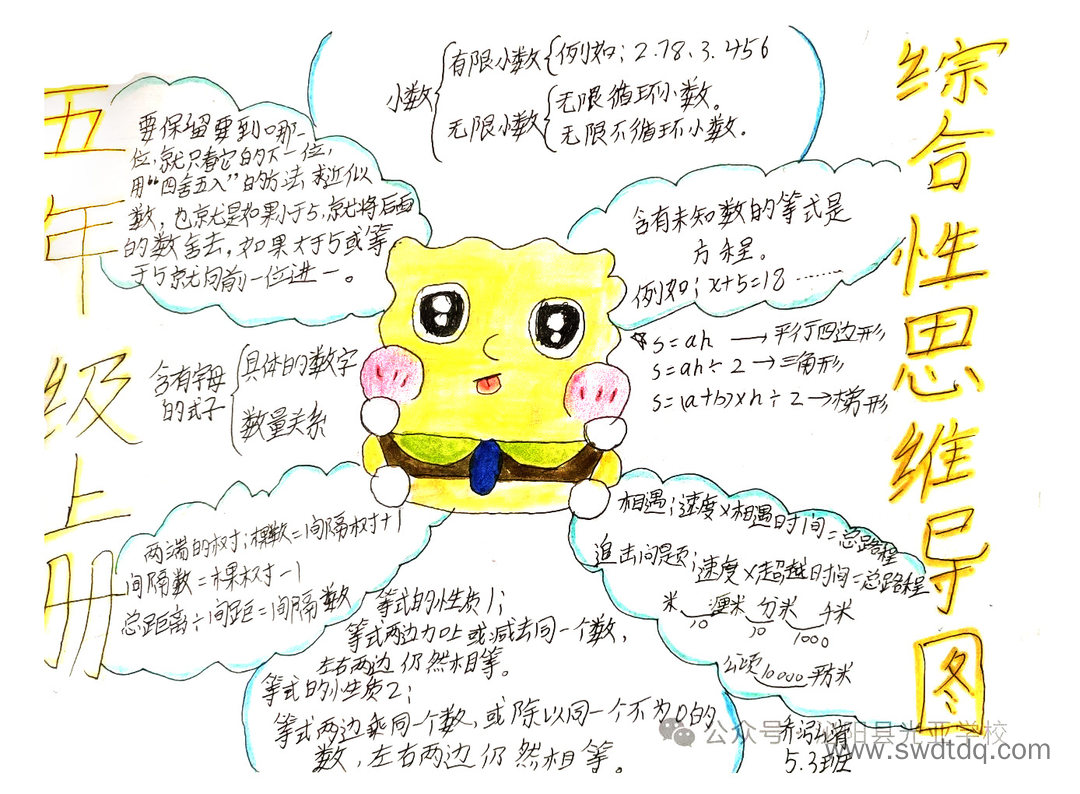 五年级上册
综合性思维导图
小数
有限小数{例如:2.78、3.456
无限小数
无限循环小数。
无限不循环小数.
要保留要到哪一
位,就只看它的下一位,
用“四舍五入”的方法求近似
数,也就是如果小于5,就将后面
的数舍去,如果大于5或等
于5就向前一位进一。
含有未知数的等式是
方程。
例如:x+5=18 ……
s=ah → 平行四边形
s=ah÷2→三角形
s=(a+b)×h÷2→梯形
含有字母
的式子
具体的数字
数量关系
两端的树:棵数=间隔树+1
间隔数=棵树-1
总距离÷间距=间隔数
相遇:速度×相遇时间=总路程
追击问题:速度×超越时间=总路程
米 厘米 分米 千米
10 10 1000
公顷10000平方米
等式的性质1:
等式两边加上或减去同一个数,
左右两边仍然相等。
等式的性质2:
等式两边乘同一个数,或除以同一个不为0的
数,左右两边仍然相等。
公众号
阳县光亚学校
5.3班
www.swdtdq.com